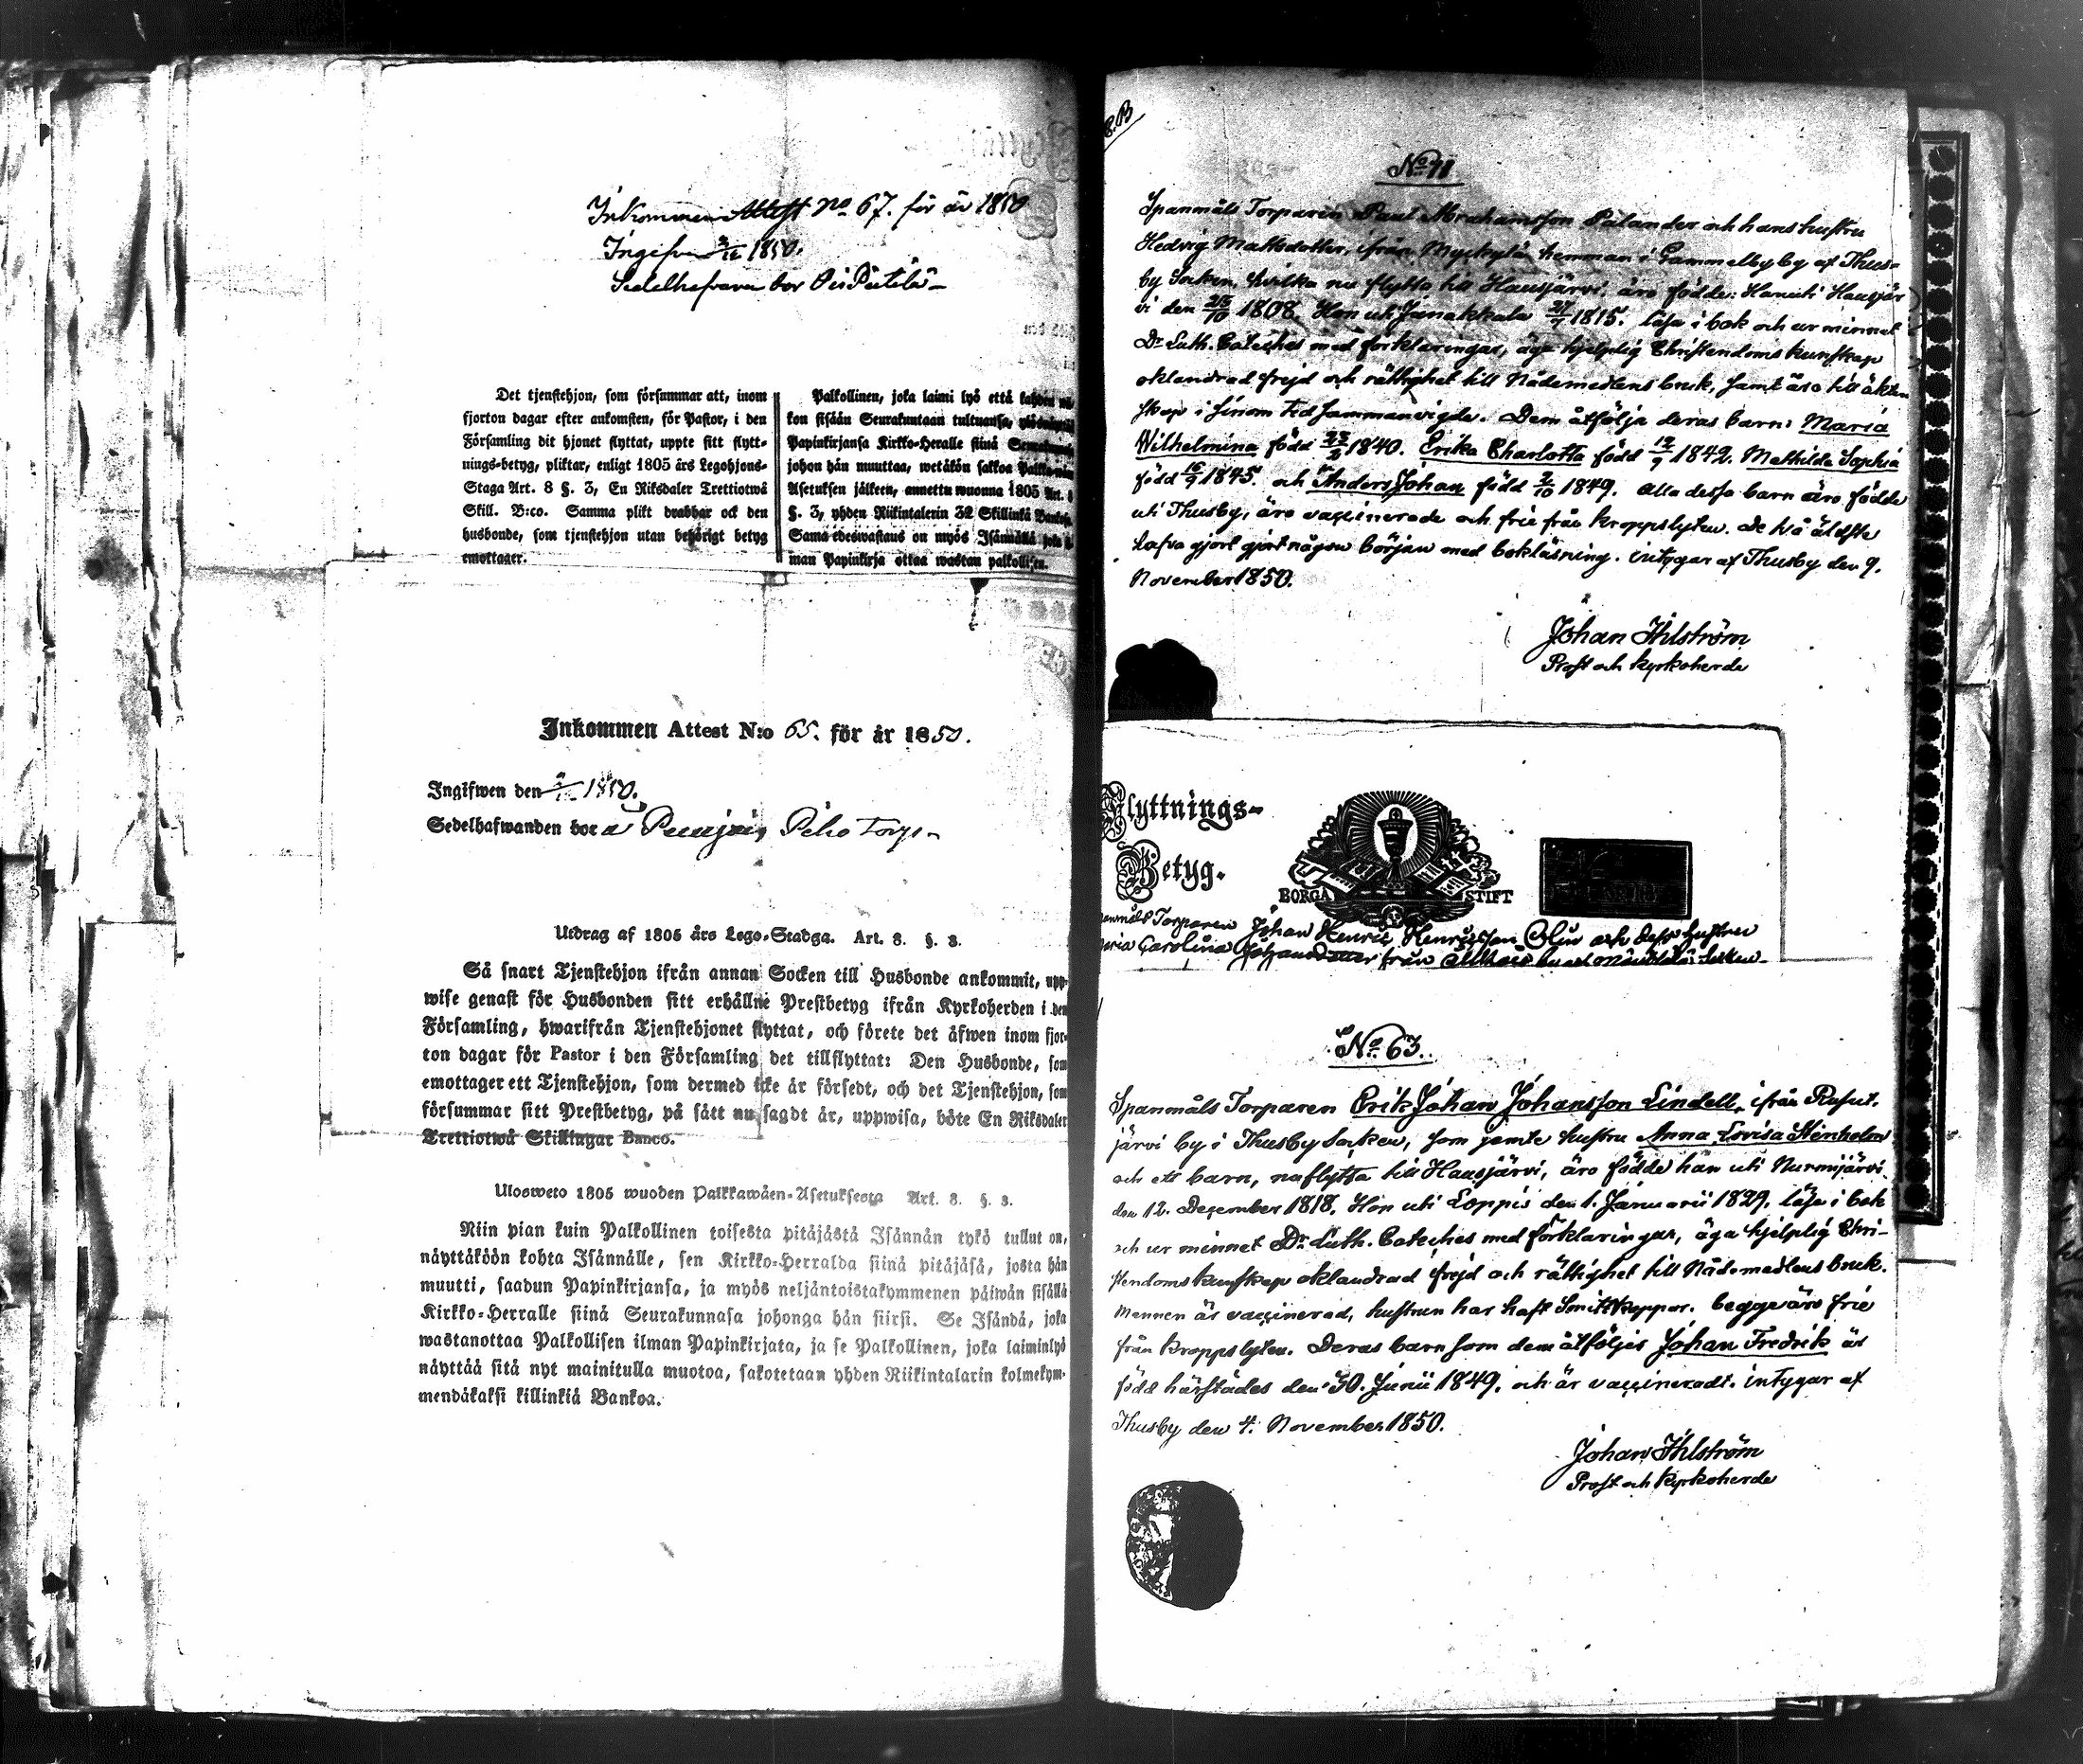 Inkommen Attest No 67. för år 1850
Ingifven 1850.
Sedelhafvaren bor
Det tjenstehjon, som försummar att, inom
fjorton dagar efter ankomsten, för Pastor, i den
Församling dit hjonet flyttat, uppte sitt flytt-
nings-betyg, pliktar, enligt 1805 års Legohjons-
Staga Art. 8 §. 3, En Riksdaler Trettiotwå
Skill. B:co. Samma plikt drabbar ock den
husbonde, som tjenstehjon utan behörigt betyg
emottager.
Palkollinen, joka laimi lyö että
kon sisään Seurakuntaan tultuansa,
Papinkirjansa Kirkko-Heralle siinä
johon hän muuttaa, wetäkön sakkoa
Asetuksen jälkeen, annettu wuonna 1805 Art.
§. 3, yhden Riikintalerin 32 Skillinkiä
Sama edeswastaus on myös Isännällä joka
man Papinkirja ottaa wastan palkollisen.
Inkommen Attest N:o 65. för år 1850.
Ingifwen den 1850.
Sedelhafwanden bor å Torp
Utdrag af 1805 års Lego-Stadga. Art. 8. §. 3.
Så snart Tjenstehjon ifrån annan Socken till Husbonde ankommit, upp-
wise genast för Husbonden sitt erhållne Prestbetyg ifrån Kyrkoherden i den
Församling, hwarifrån Tjenstehjonet flyttat, och förete det äfwen inom fjor-
ton dagar för Pastor i den Församling det tillflyttat: Den Husbonde, som
emottager ett Tjenstehjon, som dermed icke är försedt, och det Tjenstehjon, som
försummar sitt Prestbetyg, på sätt nu sagdt är, uppwisa, böte En Riksdaler
Trettiotwå Skillingar Banco.
Uloswеto 1805 wuoden Palkkawäen-Asetuksesta Art. 8. §. 3.
Niin pian kuin Palkollinen toisesta pitäjästä Isännän tykö tullut on,
näyttäköön kohta Isännälle, sen Kirkko-Herralda siinä pitäjäsä, josta hän
muutti, saadun Papinkirjansa, ja myös neljäntoistakymmenen päiwän sisällä
Kirkko-Herralle siinä Seurakunnasa johonga hän siirsi. Se Isändä, joka
wastanottaa Palkollisen ilman Papinkirjata, ja se Palkollinen, joka laiminlyö
näyttää sitä nyt mainitulla muotoa, sakotetaan yhden Riikintalarin kolmekym-
mendäkaksi killinkiä Bankoa.
No 71
Spanmåls Torparen Paul Abrahamsson Palander och hans hustru
Hedvig Mattsdotter, ifrån hemman i Gammelby by af Thus-
by Socken, hvilka nu flytta till Hausjärvi, äro födde: Han uti Hausjär
vi den 25/10 1808. Hon uti Janakkala 1815. läsa i bok och ur minnet
Dr Luth. Cateches med förklaringar, äga hjelplig Christendoms kunskap
oklandrad frejd och rättighet till Nådemedlens bruk, samt äro till äkten
skap i sinom tid sammanvigde. Dem åtfölja deras barn: Maria
Wilhelmina född 1840. Erika Charlotta född 12/9 1842. Mathilda Sophia
född 1845. och Anders Johan född 2/10 1849. alla dessa barn äro födde
uti Thusby, äro vaccinerade och frie från kroppslyten. De två äldste
hafva gjort gjort någon början med bokläsning. intygar af Thusby den 9.
November 1850.
Johan Ahlström
Prost och kyrkoherde
Flyttnings-
Betyg.
BORGÅ STIFT
Torparen Johan Henric Henricsson Olin och dess hustru
Carolina från
No 63.
Spanmåls Torparen Erik Johan Johansson Lindell, ifrån Rusut-
järvi by i Thusby Socken, som jemte hustru Anna Lovisa Stenholm
och ett barn, nu flytta till Hausjärvi, äro födde han uti Nurmijärvi
den 12. December 1818. Hon uti Loppis den 1. Januarii 1829. läsa i bok
och ur minnet Dr Luth. Cateches med förklaringar, äga hjelplig Chri-
stendoms kunskap oklandrad frejd och rättighet till Nådemedlens bruk.
Mannen är vaccinerad, hustrun har haft Smittkoppor. begge äro frie
från kroppslyten. Deras barn som dem åtföljer Johan Fredrik är
född härstädes den 30. Junii 1849. och är vaccineradt. intygar af
Thusby den 4. November 1850.
Johan Ahlström
Prost och kyrkoherde